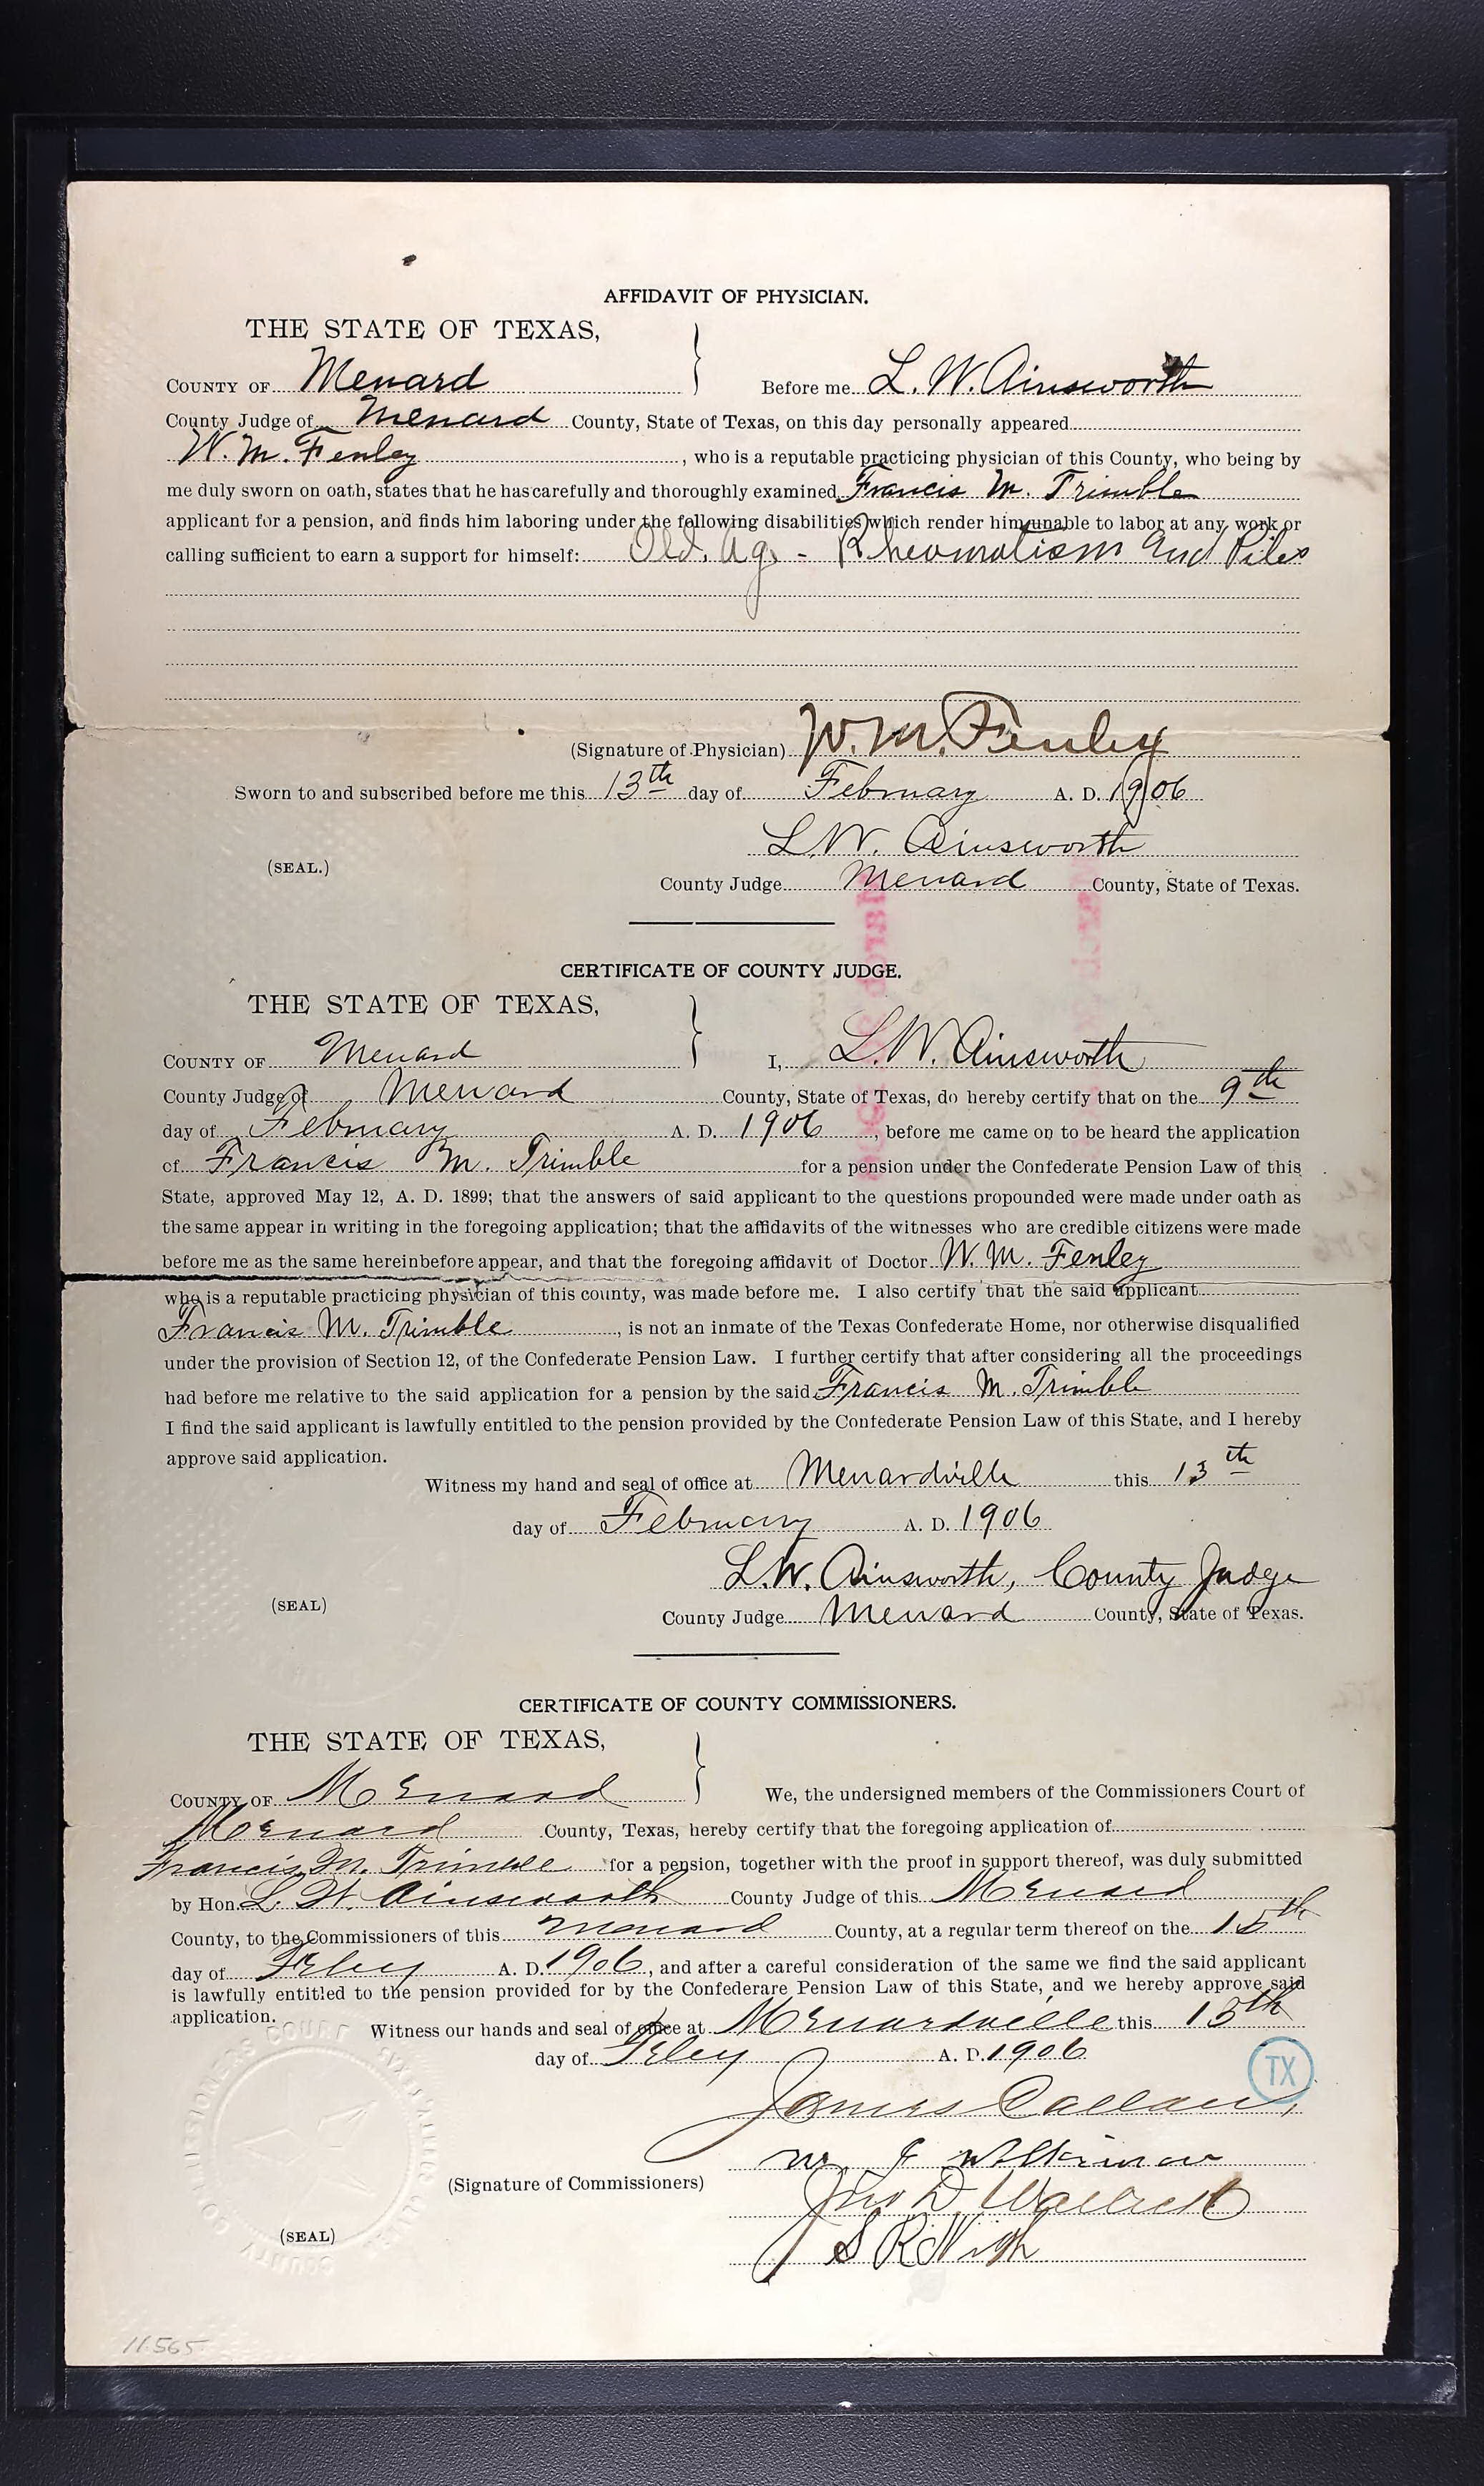 AFFIDAVIT OF PHYSICIAN.
THE STATE OF TEXAS,
COUNTY OF Menard } Before me L. W. Ainsworth
County Judge of Menard County, State of Texas, on this day personally appeared
W. M. Fenley, who is a reputable practicing physician of this County, who being by
me duly sworn on oath, states that he has carefully and thoroughly examined Francis M. Trimble
applicant for a pension, and finds him laboring under the following disabilities which render him unable to labor at any work or
calling sufficient to earn a support for himself: Old. Age - Rheumatism and Piles
(Signature of Physician) W. M. Fenley
Sworn to and subscribed before me this 13th day of February A. D. 1906
L. W. Ainsworth
(SEAL.)
County Judge Menard County, State of Texas.
CERTIFICATE OF COUNTY JUDGE.
THE STATE OF TEXAS,
COUNTY OF Menard } I, L. W. Ainsworth
County Judge of Menard County, State of Texas, do hereby certify that on the 9th
day of February A. D. 1906, before me came on to be heard the application
of Francis M. Trimble for a pension under the Confederate Pension Law of this
State, approved May 12, A. D. 1899; that the answers of said applicant to the questions propounded were made under oath as
the same appear in writing in the foregoing application; that the affidavits of the witnesses who are credible citizens were made
before me as the same hereinbefore appear, and that the foregoing affidavit of Doctor W. M. Fenley
who is a reputable practicing physician of this county, was made before me. I also certify that the said applicant
Francis M. Trimble, is not an inmate of the Texas Confederate Home, nor otherwise disqualified
under the provision of Section 12, of the Confederate Pension Law. I further certify that after considering all the proceedings
had before me relative to the said application for a pension by the said Francis M. Trimble
I find the said applicant is lawfully entitled to the pension provided by the Confederate Pension Law of this State, and I hereby
approve said application.
Witness my hand and seal of office at Menardville this 13th
day of February A. D. 1906
L. W. Ainsworth, County Judge
(SEAL)
County Judge Menard County, State of Texas.
CERTIFICATE OF COUNTY COMMISSIONERS.
THE STATE OF TEXAS,
COUNTY OF Menard } We, the undersigned members of the Commissioners Court of
Menard County, Texas, hereby certify that the foregoing application of
Francis M. Trimble for a pension, together with the proof in support thereof, was duly submitted
by Hon. L. W. Ainsworth County Judge of this Menard
County, to the Commissioners of this Menard County, at a regular term thereof on the
day of Feby A. D. 1906, and after a careful consideration of the same we find the said applicant
is lawfully entitled to the pension provided for by the Confederare Pension Law of this State, and we hereby approve said
application.
Witness our hands and seal of office at Menardville this 13th
day of Feby A. D. 1906
TX
James Callan,
W. J. Wilkinson
(Signature of Commissioners)
Jno D. Wallick
(SEAL)
S R
COMMISSIONERS COURT
COUNTY
11565